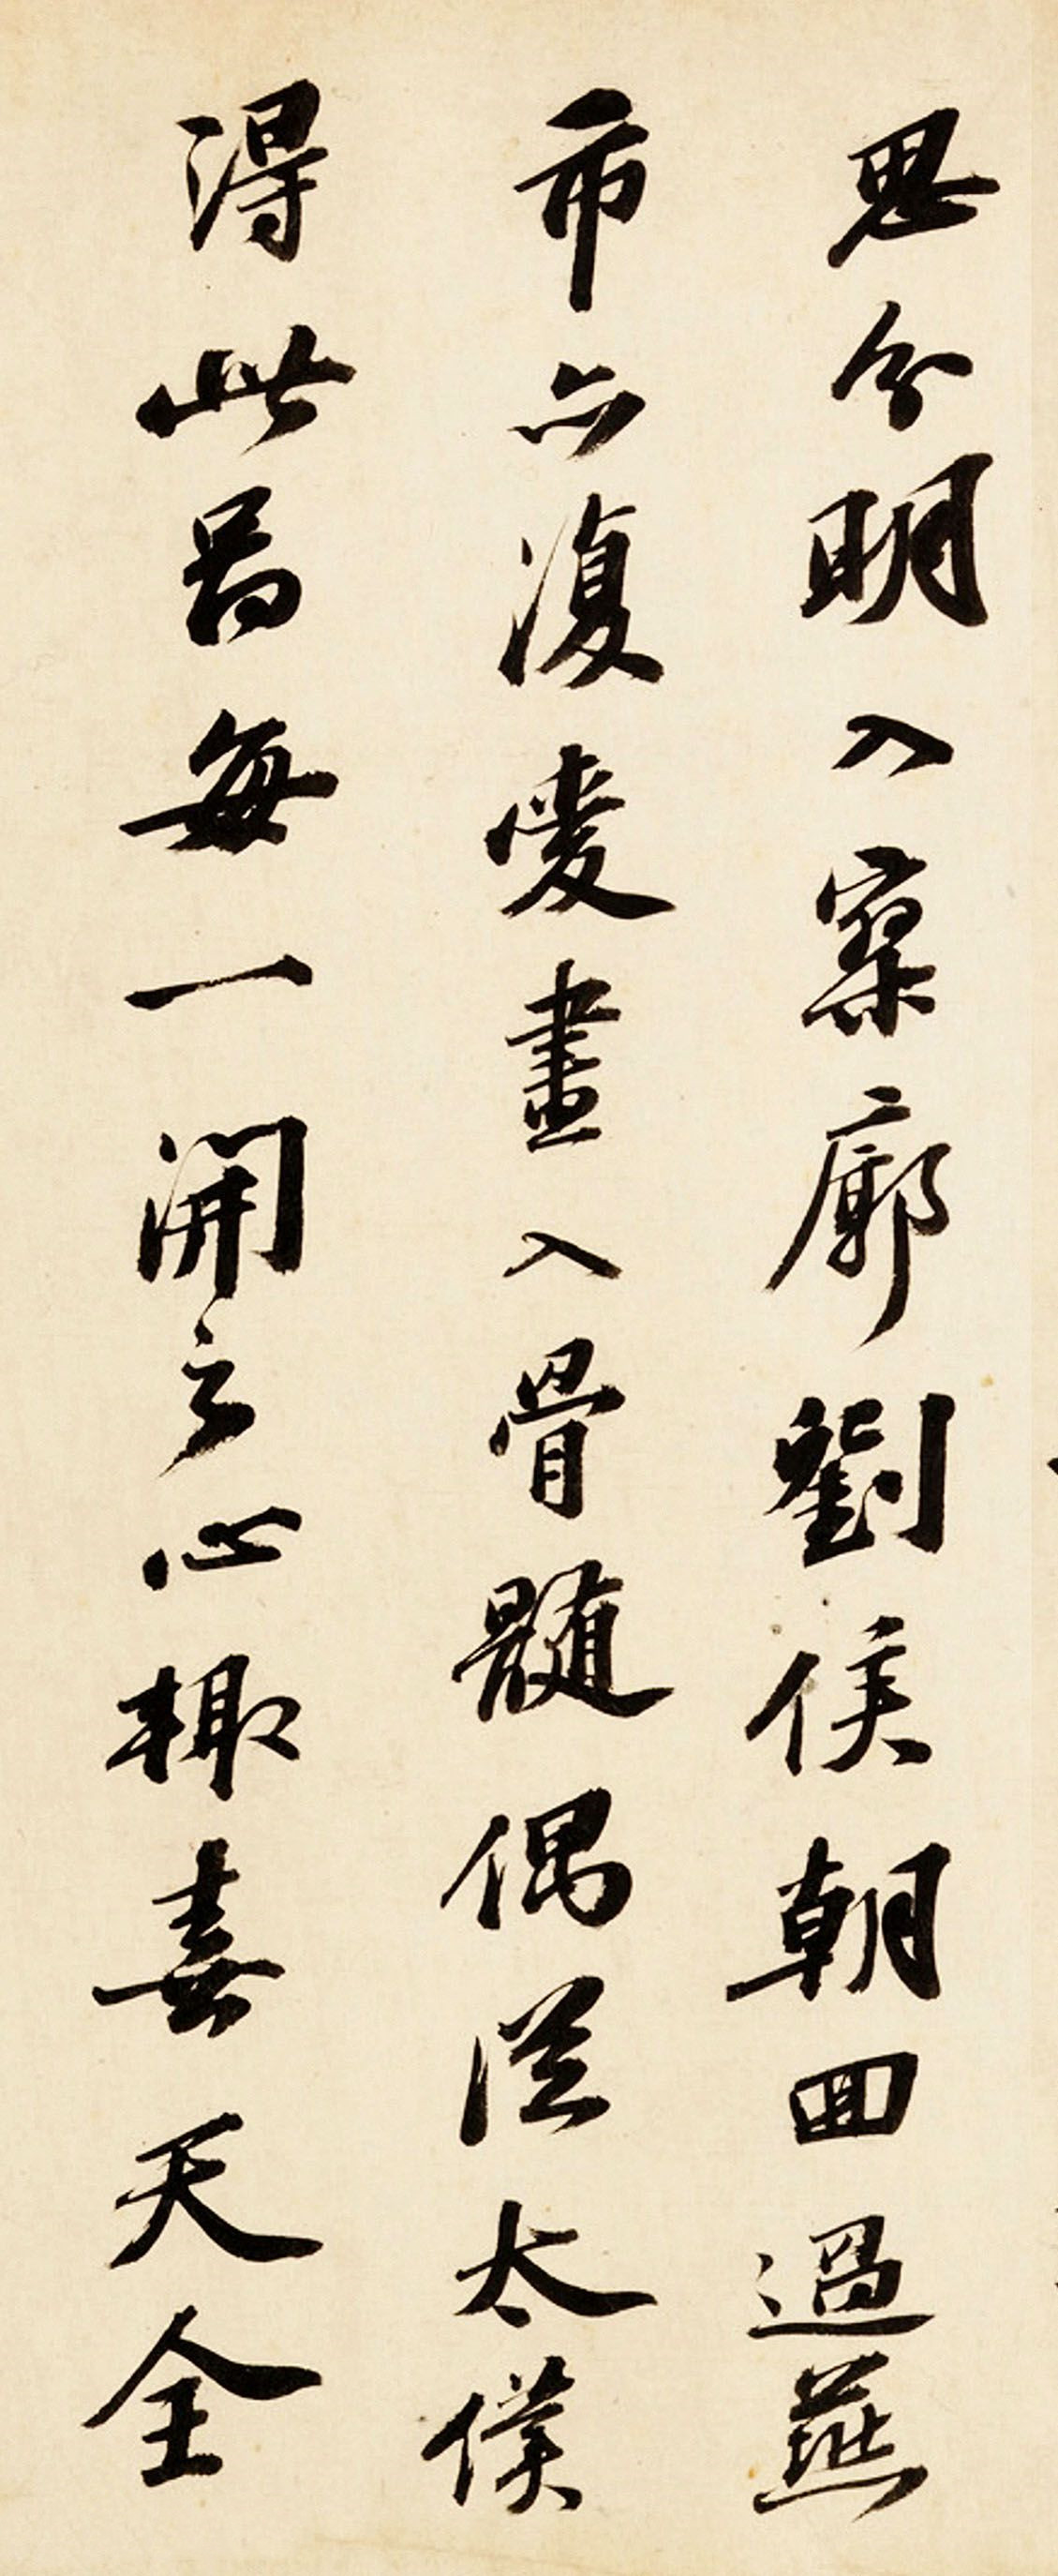 思分明入寥廓劉侯朝回過燕
市亦復愛畫入骨髓偶從太僕
得此圖每一開之心輒喜天全